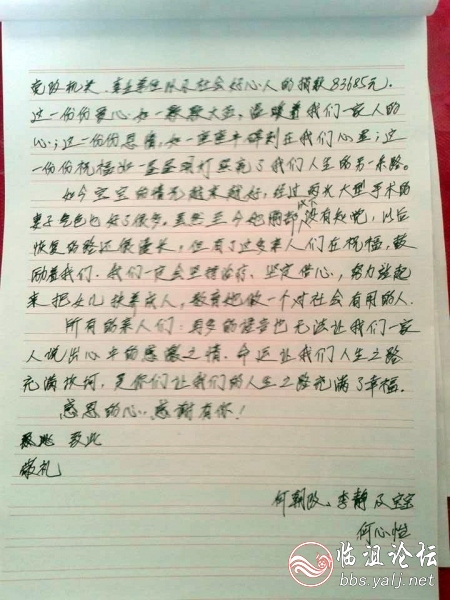 党政机关、企事业单位以及社会好心人的捐款83685元.
这一份份爱心如一颗颗太阳,温暖着我们一家人的
心;这一份份恩情,如一座座丰碑刻在我们心里;这
一份份祝福如一盏盏明灯照亮了我们人生的另一条路。
如今宝宝的情况越来越好,经过两次大型手术的
妻子气色也好了很多。虽然至今她两都下没有知觉,以后
恢复的路还很漫长,但有了这多亲人们在祝福,鼓
励着我们.我们一定会坚持治疗、坚定信心,努力站起
来把女儿抚养成人,教育她做一个对社会有用的人.
所有的亲人们:再多的语言也无法让我们一家
人说出心中的感激之情.命运让我们人生之路
充满坎坷,是你们让我们的人生之路充满了幸福.
感恩的心,感谢有你!
致此
敬礼
何朝政、李静及宝宝
何心怡
临沮论坛
bbs.yalj.net